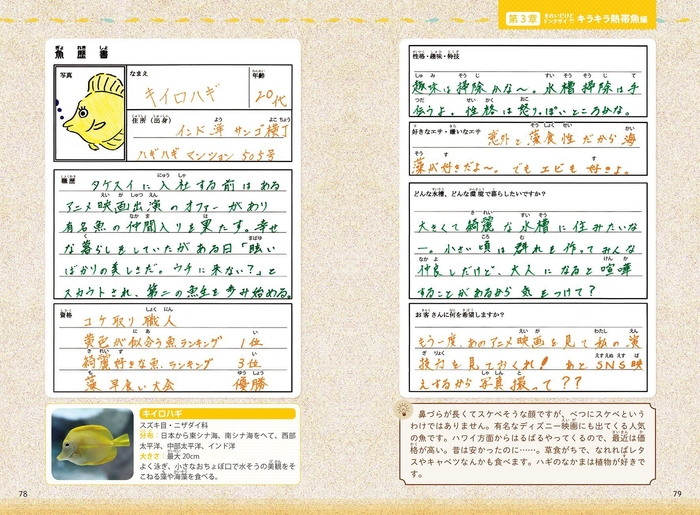 第3章 きれいだけどドンクサイ!? キラキラ熱帯魚編
魚歴書
写真
なまえ
キイロハギ
年齢
20代
住所(出身)
インド洋 サンゴ横丁
ハギハギマンション 505号
職歴
タケスイに入社する前はある
アニメ映画出演のオファーがあり
有名魚の仲間入りを果たす。幸せ
な暮らしをしていたがある日「眩い
ばかりの美しさだ。ウチに来ない?」と
スカウトされ、第二の魚生を歩み始める。
資格
コケ取り職人
黄色が似合う魚ランキング 1位
綺麗好きな魚ランキング 3位
藻早食い大会 優勝
キイロハギ
スズキ目・ニザダイ科
分布:日本から東シナ海、南シナ海をへて、西部
太平洋、中部太平洋、インド洋
大きさ:最大20cm
よく泳ぎ、小さなおちょぼ口で水そうの美観をそ
こねる藻や海藻を食べる。
78
性格・趣味・特技
趣味は掃除かな〜。水槽掃除は手
伝うよ。性格は怒りっぽいところかな。
好きなエサ・嫌いなエサ
意外と藻食性だから海
藻が好きだよ〜。でもエビも好きよ。
どんな水槽、どんな環境で暮らしたいですか?
大きくて綺麗な水槽に住みたいな
ー。小さい頃は群れを作ってみんな
仲良しだけど、大人になると喧嘩
することがあるから気をつけて?
お客さんに何を希望しますか?
もう一度、あのアニメ映画を見て私の演
技力を見ておくれ!あとSNS映
えするから写真撮って??
鼻づらが長くてスケベそうな顔ですが、べつにスケベという
わけではありません。有名なディズニー映画にも出てくる人気
の魚です。ハワイ方面からはるばるやってくるので、最近は価
格が高い。昔は安かったのに……。草食がちで、なれればレタ
スやキャベツなんかも食べます。ハギのなかまは植物が好きで
す。
79